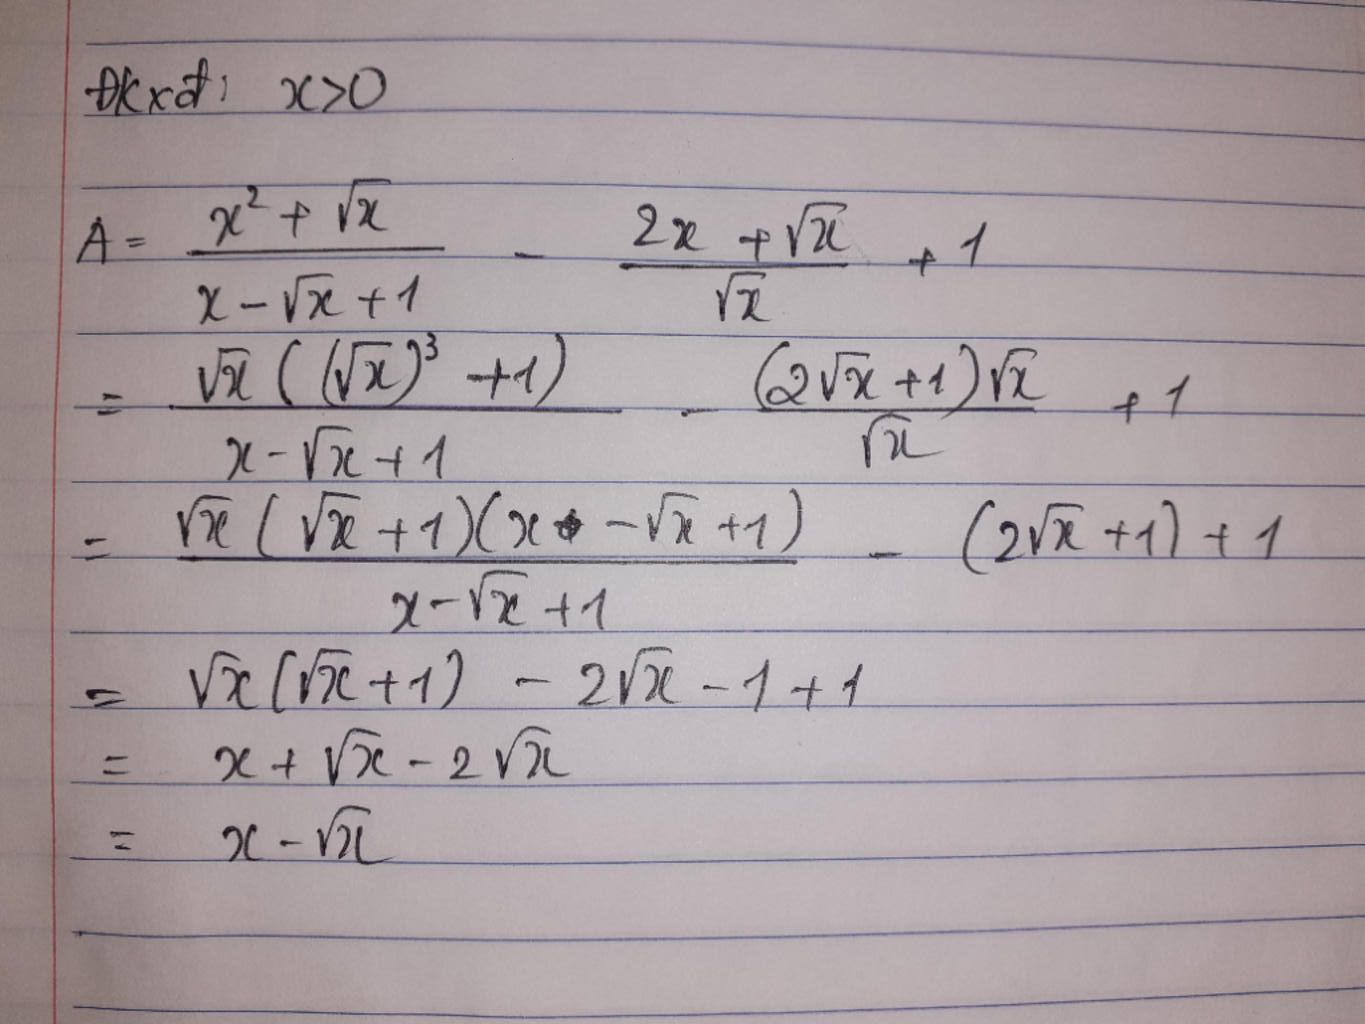 Đkxđ: x>0
A = \frac{x^2 + \sqrt{x}}{x - \sqrt{x} + 1} - \frac{2x + \sqrt{x}}{\sqrt{x}} + 1
= \frac{\sqrt{x}((\sqrt{x})^3 + 1)}{x - \sqrt{x} + 1} - \frac{(2\sqrt{x} + 1)\sqrt{x}}{\sqrt{x}} + 1
= \frac{\sqrt{x}(\sqrt{x} + 1)(x - \sqrt{x} + 1)}{x - \sqrt{x} + 1} - (2\sqrt{x} + 1) + 1
= \sqrt{x}(\sqrt{x} + 1) - 2\sqrt{x} - 1 + 1
= x + \sqrt{x} - 2\sqrt{x}
= x - \sqrt{x}